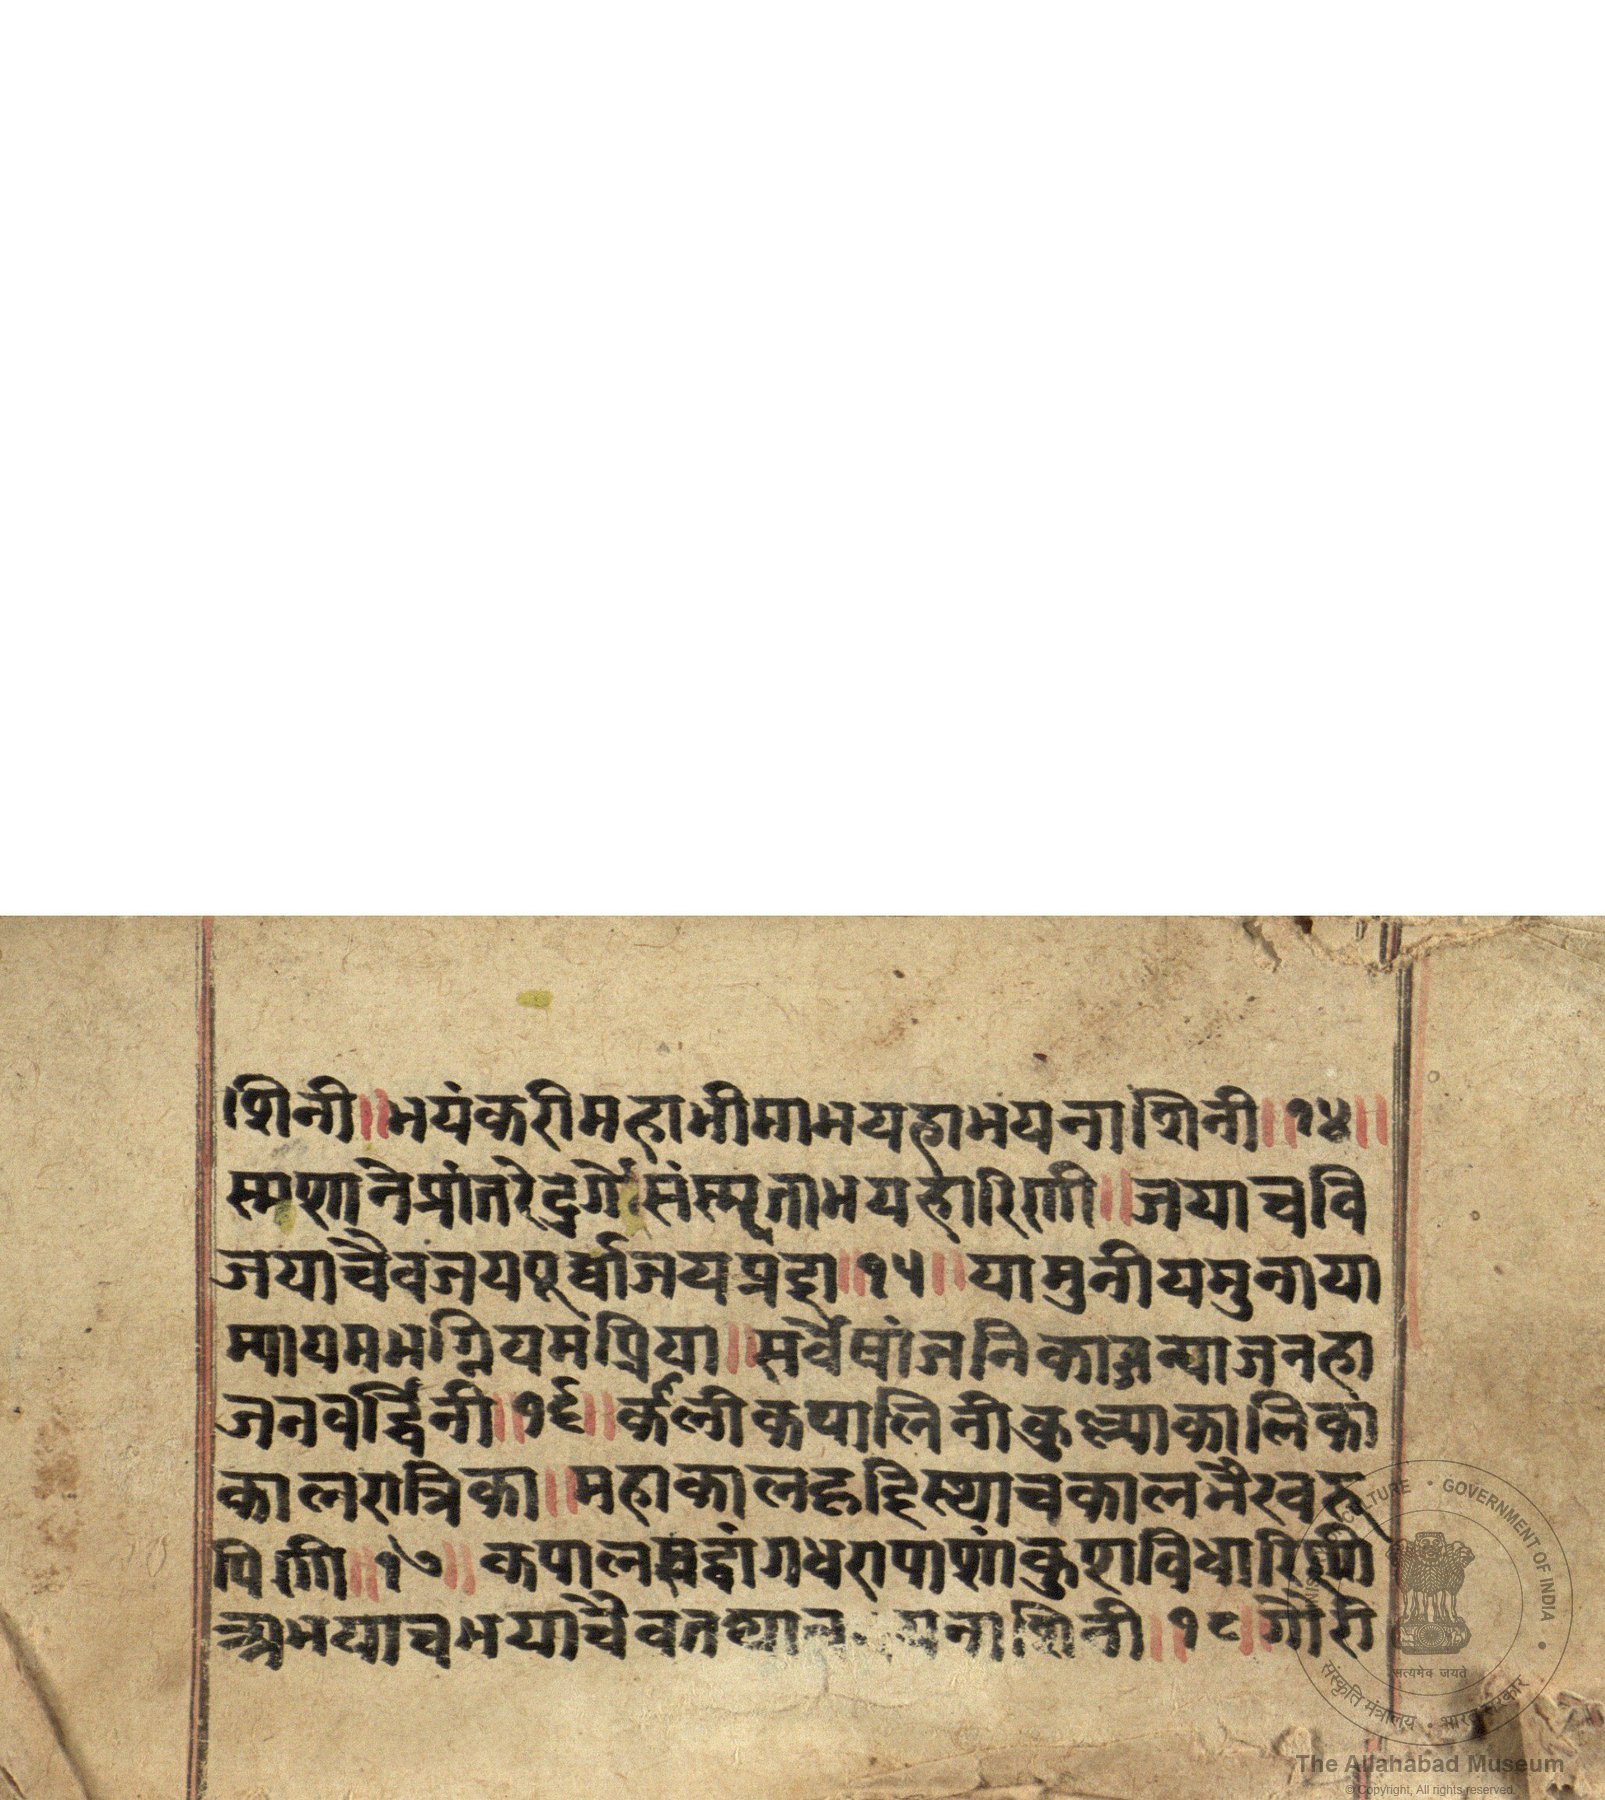 शिनी॥भयंकरीमहाभीमाभयहाभयनाशिनी॥१४॥
स्मशानेप्रांतरेदुर्गेसंस्मृताभयहारिणी॥जयाचवि
जयाचैवजयपूर्वाजयप्रदा॥१५॥यामुनीयमुनाया
म्यायमभग्नियमप्रिया॥सर्वेषांजनिकाजन्याजनहा
जनवर्द्धिनी॥१६॥कालीकपालिनीकुल्याकालिका
कालरात्रिका॥महाकालहृदिस्थाचकालभैरवरू
पिणी॥१७॥कपालखट्वांगधरापाशांकुशविधारिणी
अभयाचभयाचैवतथा नाशिनी॥१८॥गौरी
MINISTRY OF CULTURE • GOVERNMENT OF INDIA
सत्यमेव जयते
संस्कृति मंत्रालय • भारत सरकार
The Allahabad Museum
© Copyright, All rights reserved.